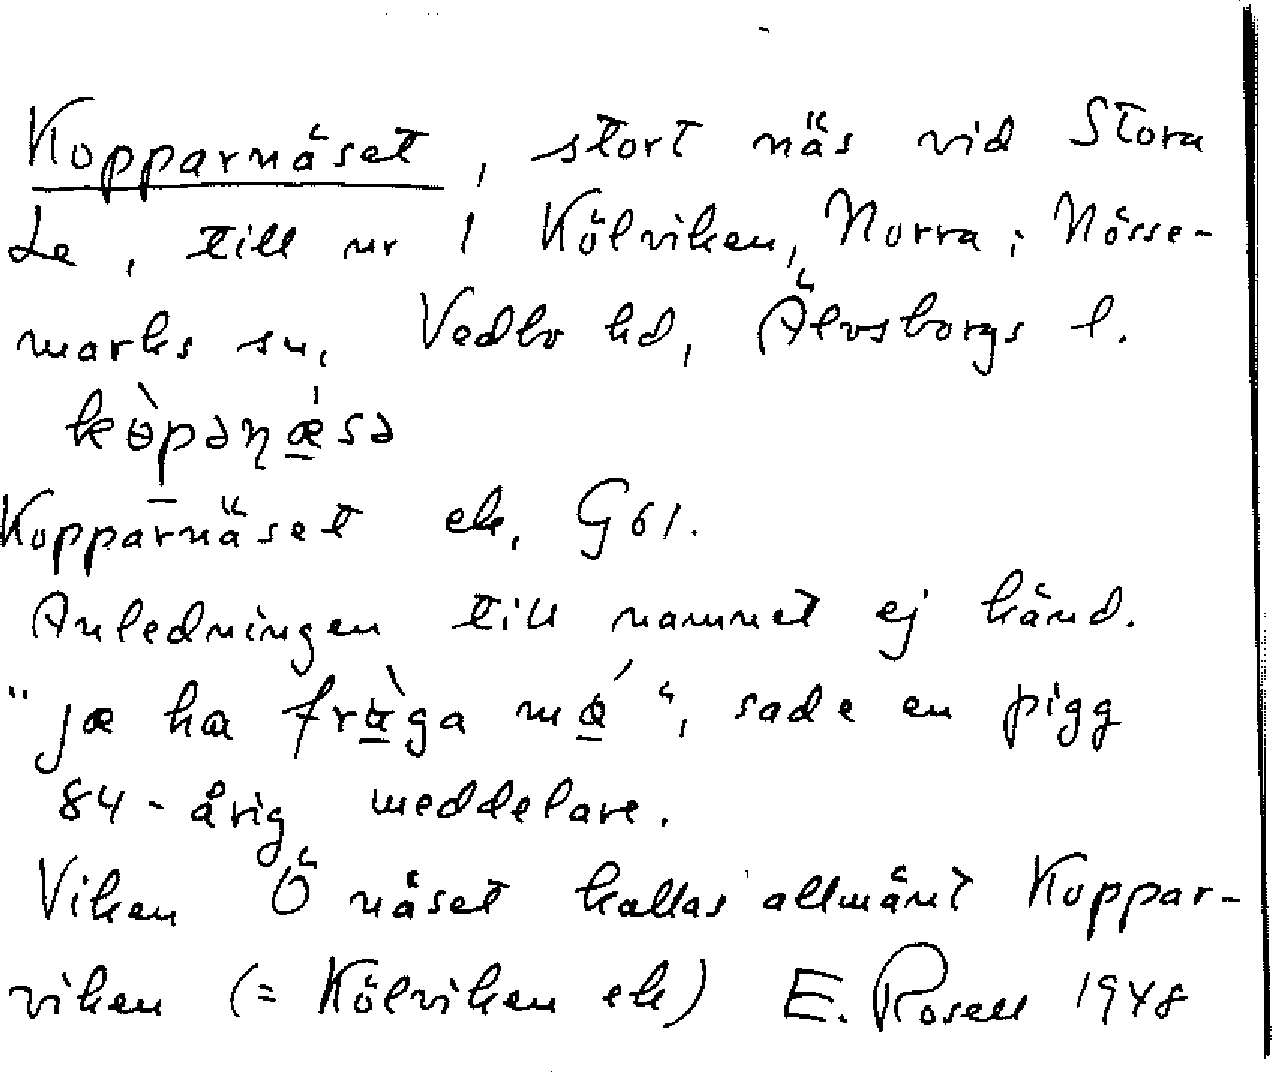 Kopparnäset, stort näs vid Stora
Le, till nr 1 Kölviken, Norra, i Nösse-
marks sn, Vedbo hd, Älvsborgs l.
kɵ̀pəɳǽsə
Kopparnäset ek, G61.
Anledningen till namnet ej känd.
"jæ ha fràga má", sade en pigg
84-årig meddelare.
Viken Ö näset kallas allmänt Koppar-
viken (= Kölviken ek) E. Rosell 1948